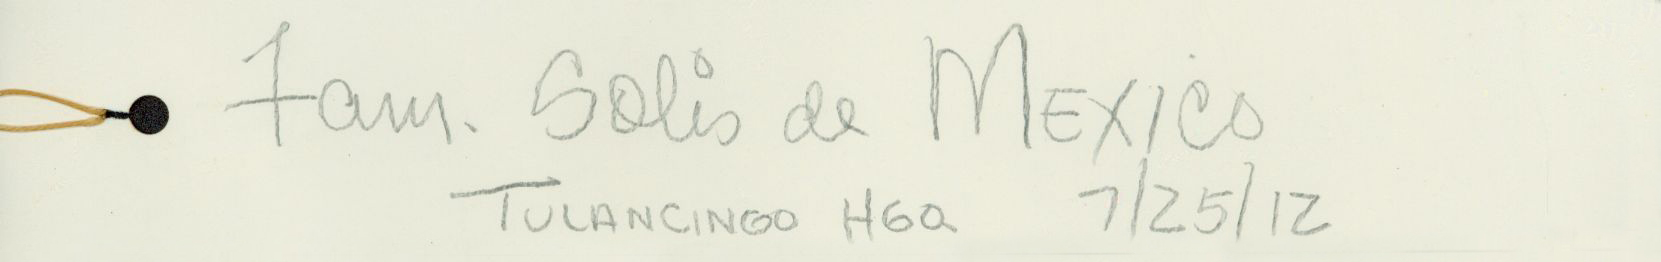 Fam. Solis de MEXICO
TULANCINGO HGO 7/25/12